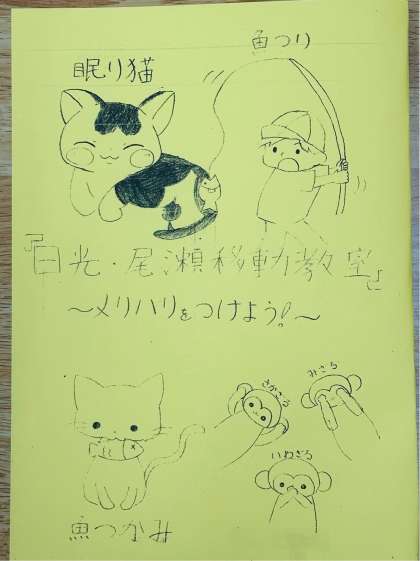 魚つり
眠り猫
『日光・尾瀬移動教室』
～メリハリをつけよう!～
みざる
きかざる
いわざる
魚つかみ